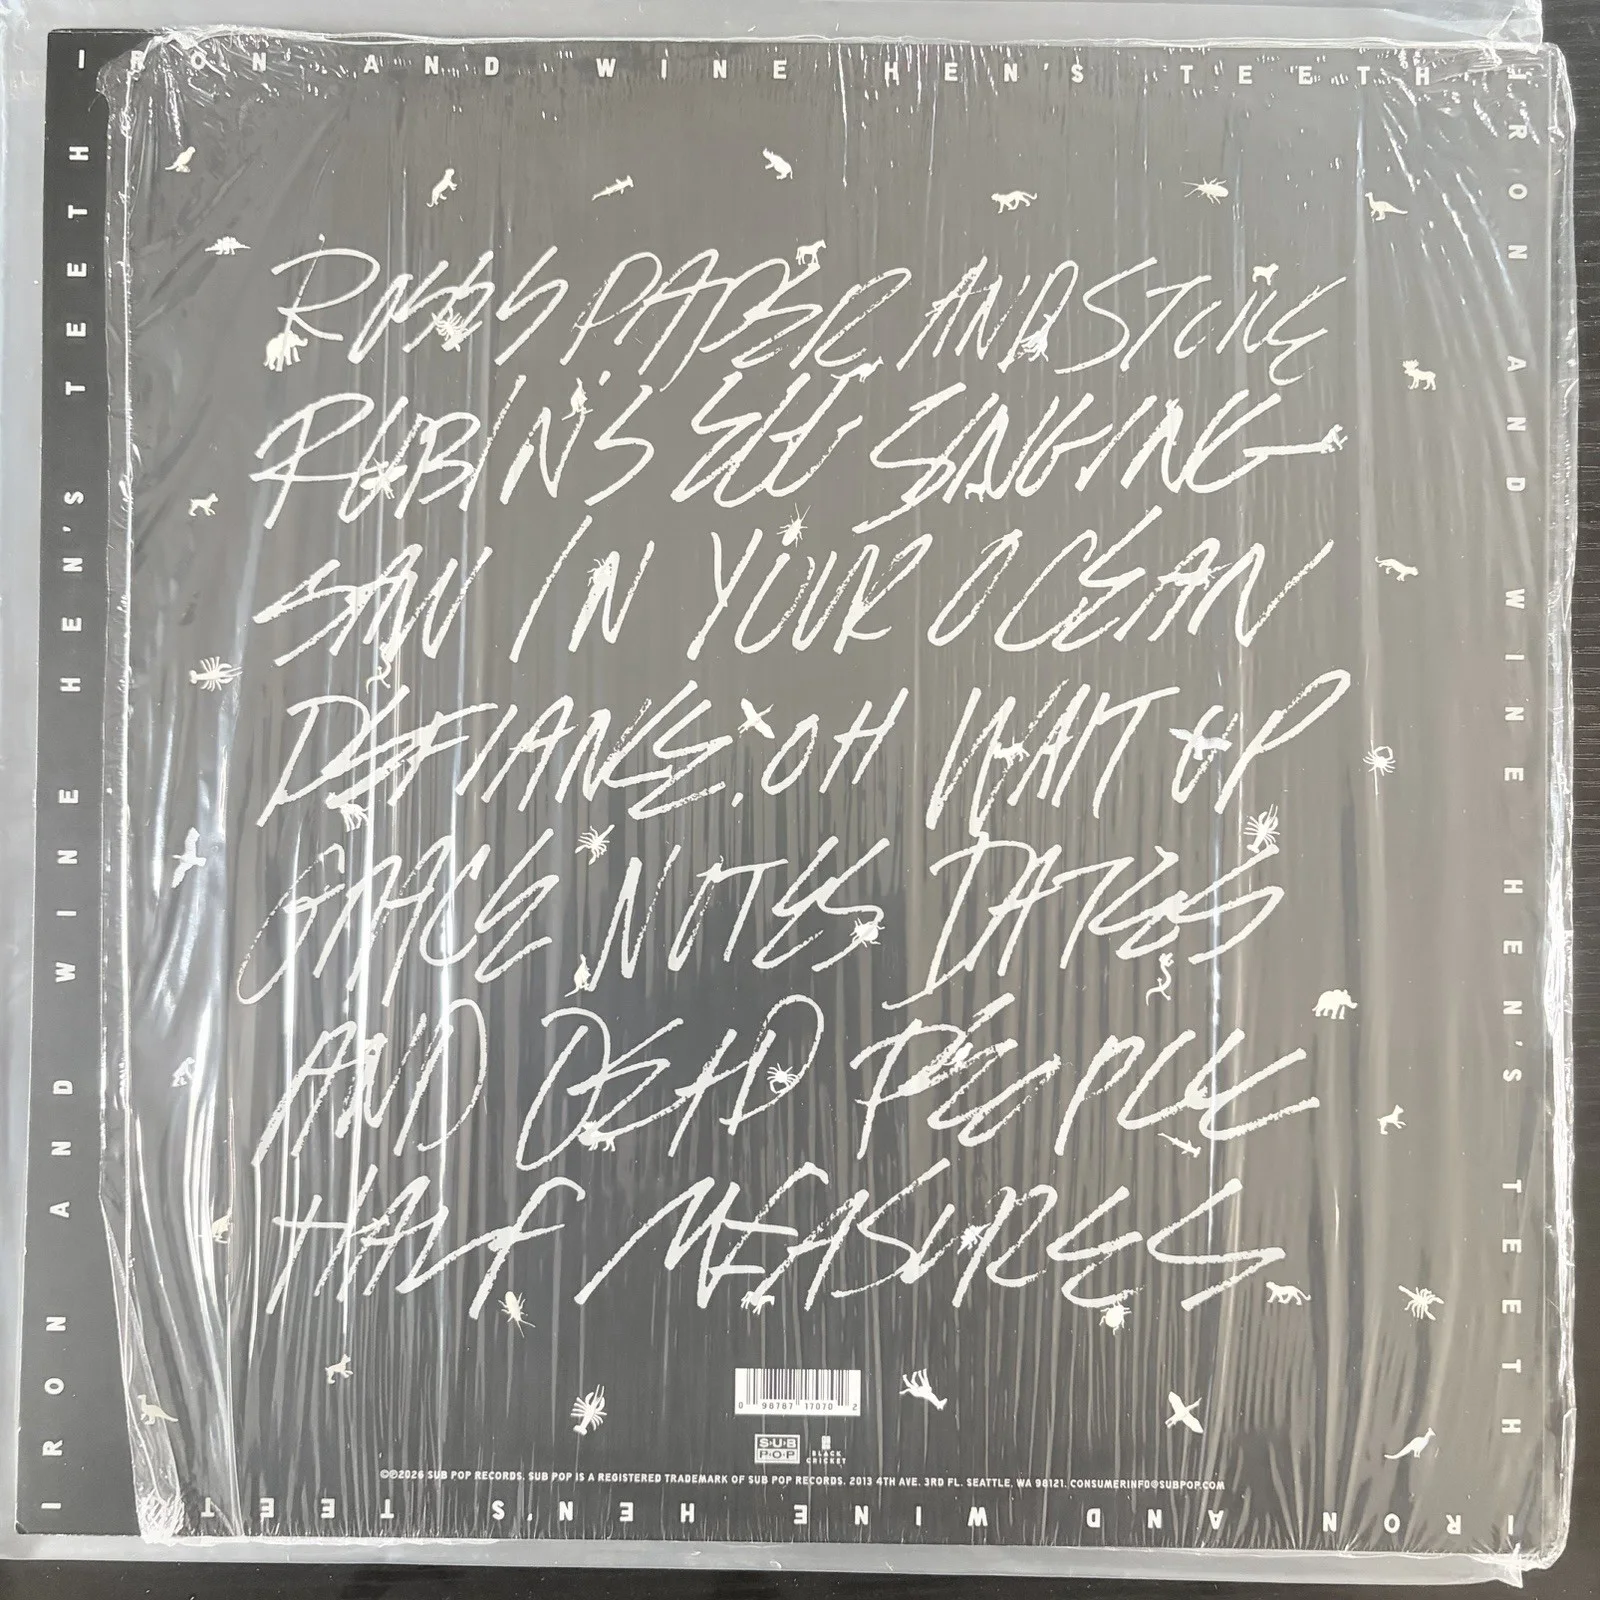 IRON AND WINE HEN'S TEETH
IRON AND WINE HEN'S TEETH
IRON AND WINE HEN'S TEETH
ROSES PAPER AND STONE
ROBIN'S EGG SINGING
SAW IN YOUR OCEAN
DEFIANCE, OH WAIT UP
GRACE NOTES DATES
AND DEAD PEOPLE
HALF MEASURES
0 98787 17070 2
SUB POP
BLACK CRICKET
©℗2026 SUB POP RECORDS. SUB POP IS A REGISTERED TRADEMARK OF SUB POP RECORDS. 2013 4TH AVE. 3RD FL. SEATTLE, WA 98121. CONSUMERINFO@SUBPOP.COM
IRON AND WINE HEN'S TEET